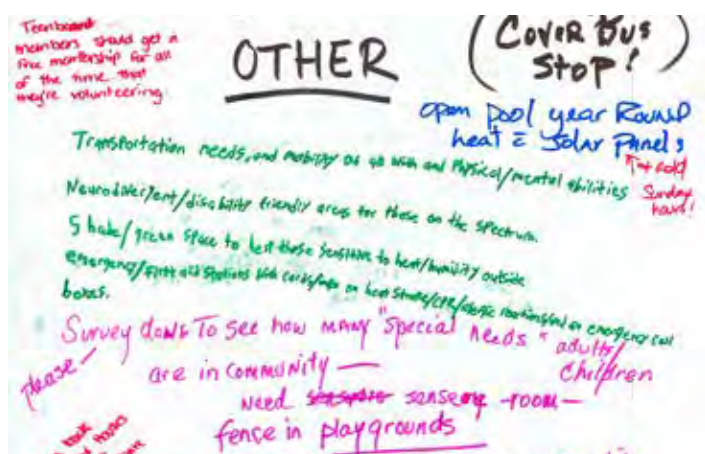 Teenboard
members should get a
free membership for all
of the time that
they're volunteering.
OTHER
(Cover Bus
Stop!)
open pool year Round
heat = Solar Panels
↑ + add
Sunday
hours!
Transportation needs, and mobility of all with and Physical/mental abilities
Neurodiverjent/disability friendly areas for those on the spectrum.
Shade/green space to best those sensitive to heat/humidity outside
emergency/first aid stations with cards/men on heat stroke/CPR/ on emergency call
boxes.
Survey done To see how many "special needs" adults/
children
please — are in community —
need sensory -room-
fence in playgrounds